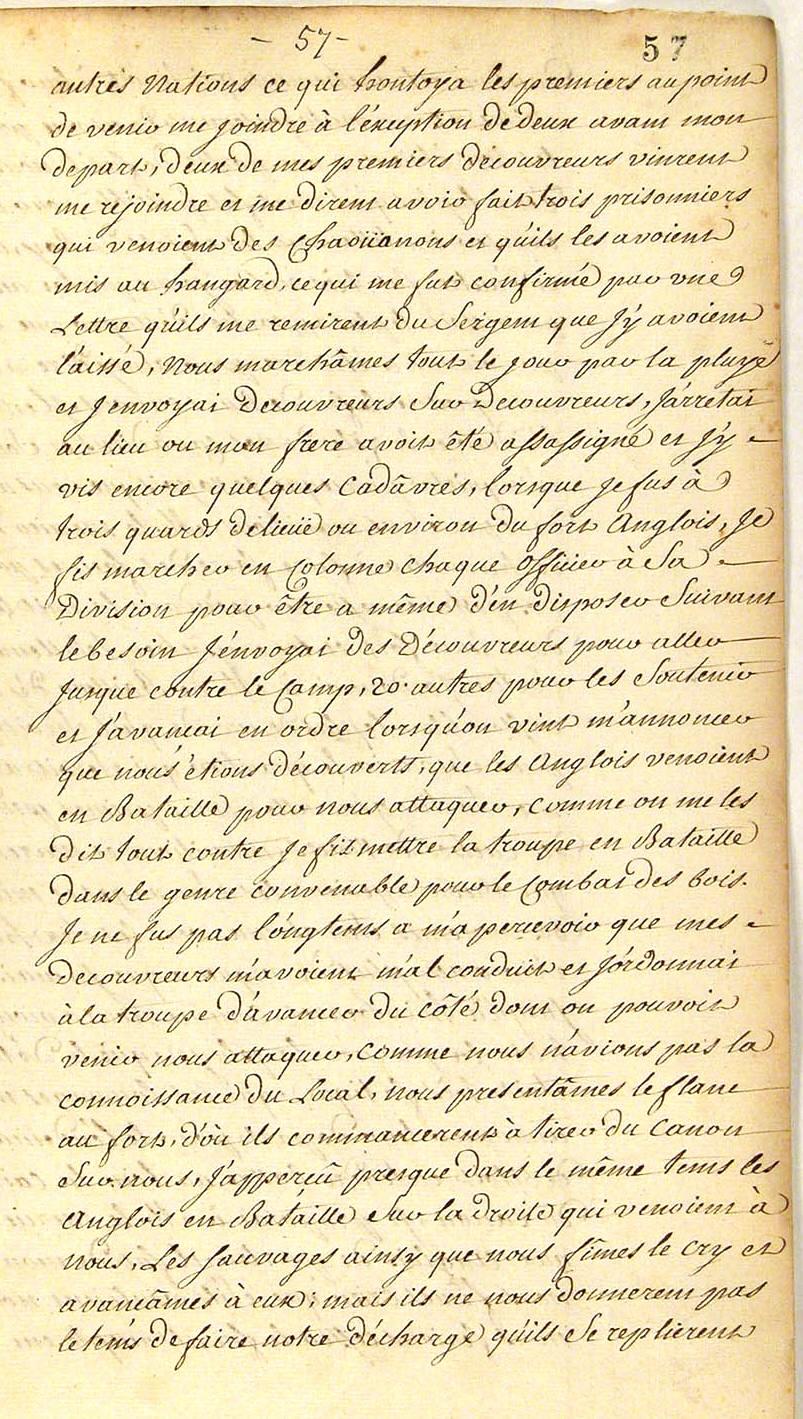 - 57 -
57
autres Nations ce qui hontoya les premiers au point
de venir me joindre à l'éxception de deux avant mon
depart, deux de mes premiers découvreurs vinrent
me rejoindre et me dirent avoir fait trois prisonniers
qui venoient des Chaoüanons et qu'ils les avoient
mis au hangard, ce qui me fut confirmé par une
Lettre qu'ils me remirent du Sergent que J'y avoient
laissé, Nous marchâmes tout le jour par la pluye
et J'envoyai Decouvreurs Sur Decouvreurs, J'arretai
au lieu ou mon frere avoit été assassigné et J'y
vis encore quelques Cadâvres, lorsque je fus à
trois quards de lieüe ou environ du fort Anglois, Je
fis marcher en Colonne chaque Officier à Sa
Division pour être a même d'en disposer Suivant
le besoin J'envoyai des Découvreurs pour aller
Jusque contre le Camp, 20. autres pour les Soutenir
et J'avancai en ordre lorsqu'on vint m'annoncer
que nous étions découverts, que les Anglois venoient
en Bataille pour nous attaquer, comme on me les
dit tout contre Je fis mettre la troupe en Bataille
dans le genre convenable pour le Combat des bois.
Je ne fus pas longtems a m'apercevoir que mes
decouvreurs m'avoient mal conduit et J'ordonnai
à la troupe d'avancer du côté dont on pouvoit
venir nous attaquer, comme nous n'avions pas la
connoissance du Local, nous presentâmes le flanc
au fort, d'où ils commancerent à tirer du Canon
Sur nous, J'apperçû presque dans le même tems les
Anglois en Bataille Sur la droite qui venoient à
nous, Les Sauvages ainsy que nous fîmes le cry et
avancâmes à eux; mais ils ne nous donnerent pas
le tems de faire notre décharge qu'ils Se replierent